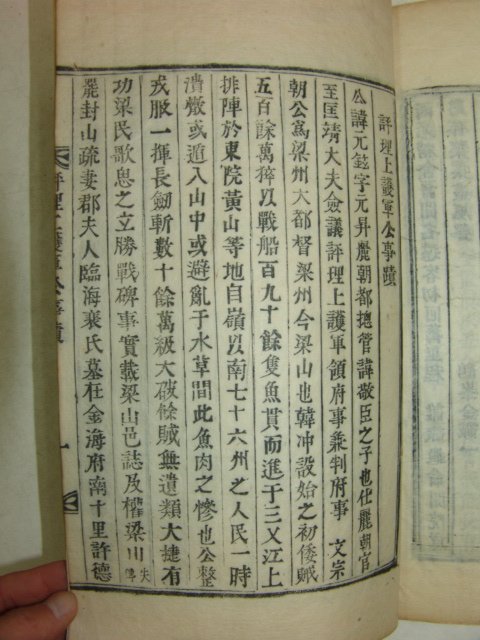 評理上護軍公事蹟
公諱元鉉字元昇麗朝都摠管諱敬臣之子也仕麗朝官
至匡靖大夫僉議評理上護軍領府事兼判府事 文宗
朝公爲梁州大都督梁州今梁山也韓冲設始之初倭賊
五百餘萬猝以戰船百九十餘隻魚貫而進于三叉江上
排陣於東院黃山等地自嶺以南七十六州之人民一時
潰散或遁入山中或避亂于水草間此魚肉之慘也公整
戎服一揮長劒斬數十餘萬級大破餘賊無遺類大捷有
功梁民歌思之立勝戰碑事實載梁山邑誌及權梁川
夫
碑
罷封山疏妻郡夫人臨海裵氏墓在金海府南十里許德
評理上護軍公事蹟
一